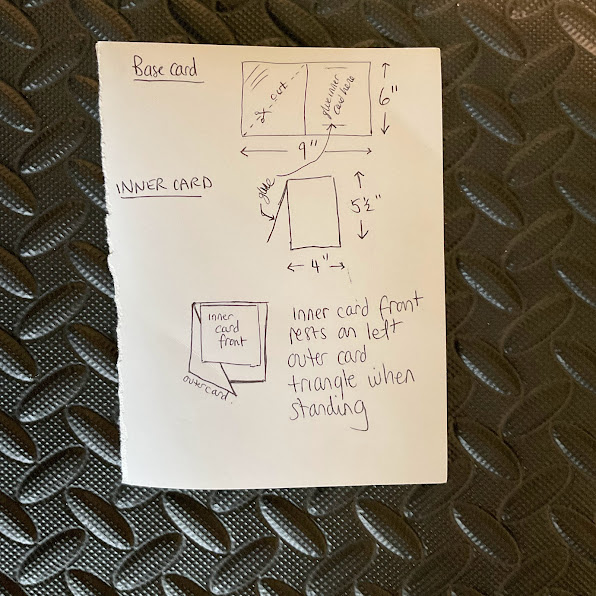 Base card
cut
glue inner
card here
6"
9"
INNER CARD
glue
5½"
4"
inner
card
front
outer card.
inner card front
rests on left
outer card
triangle when
standing